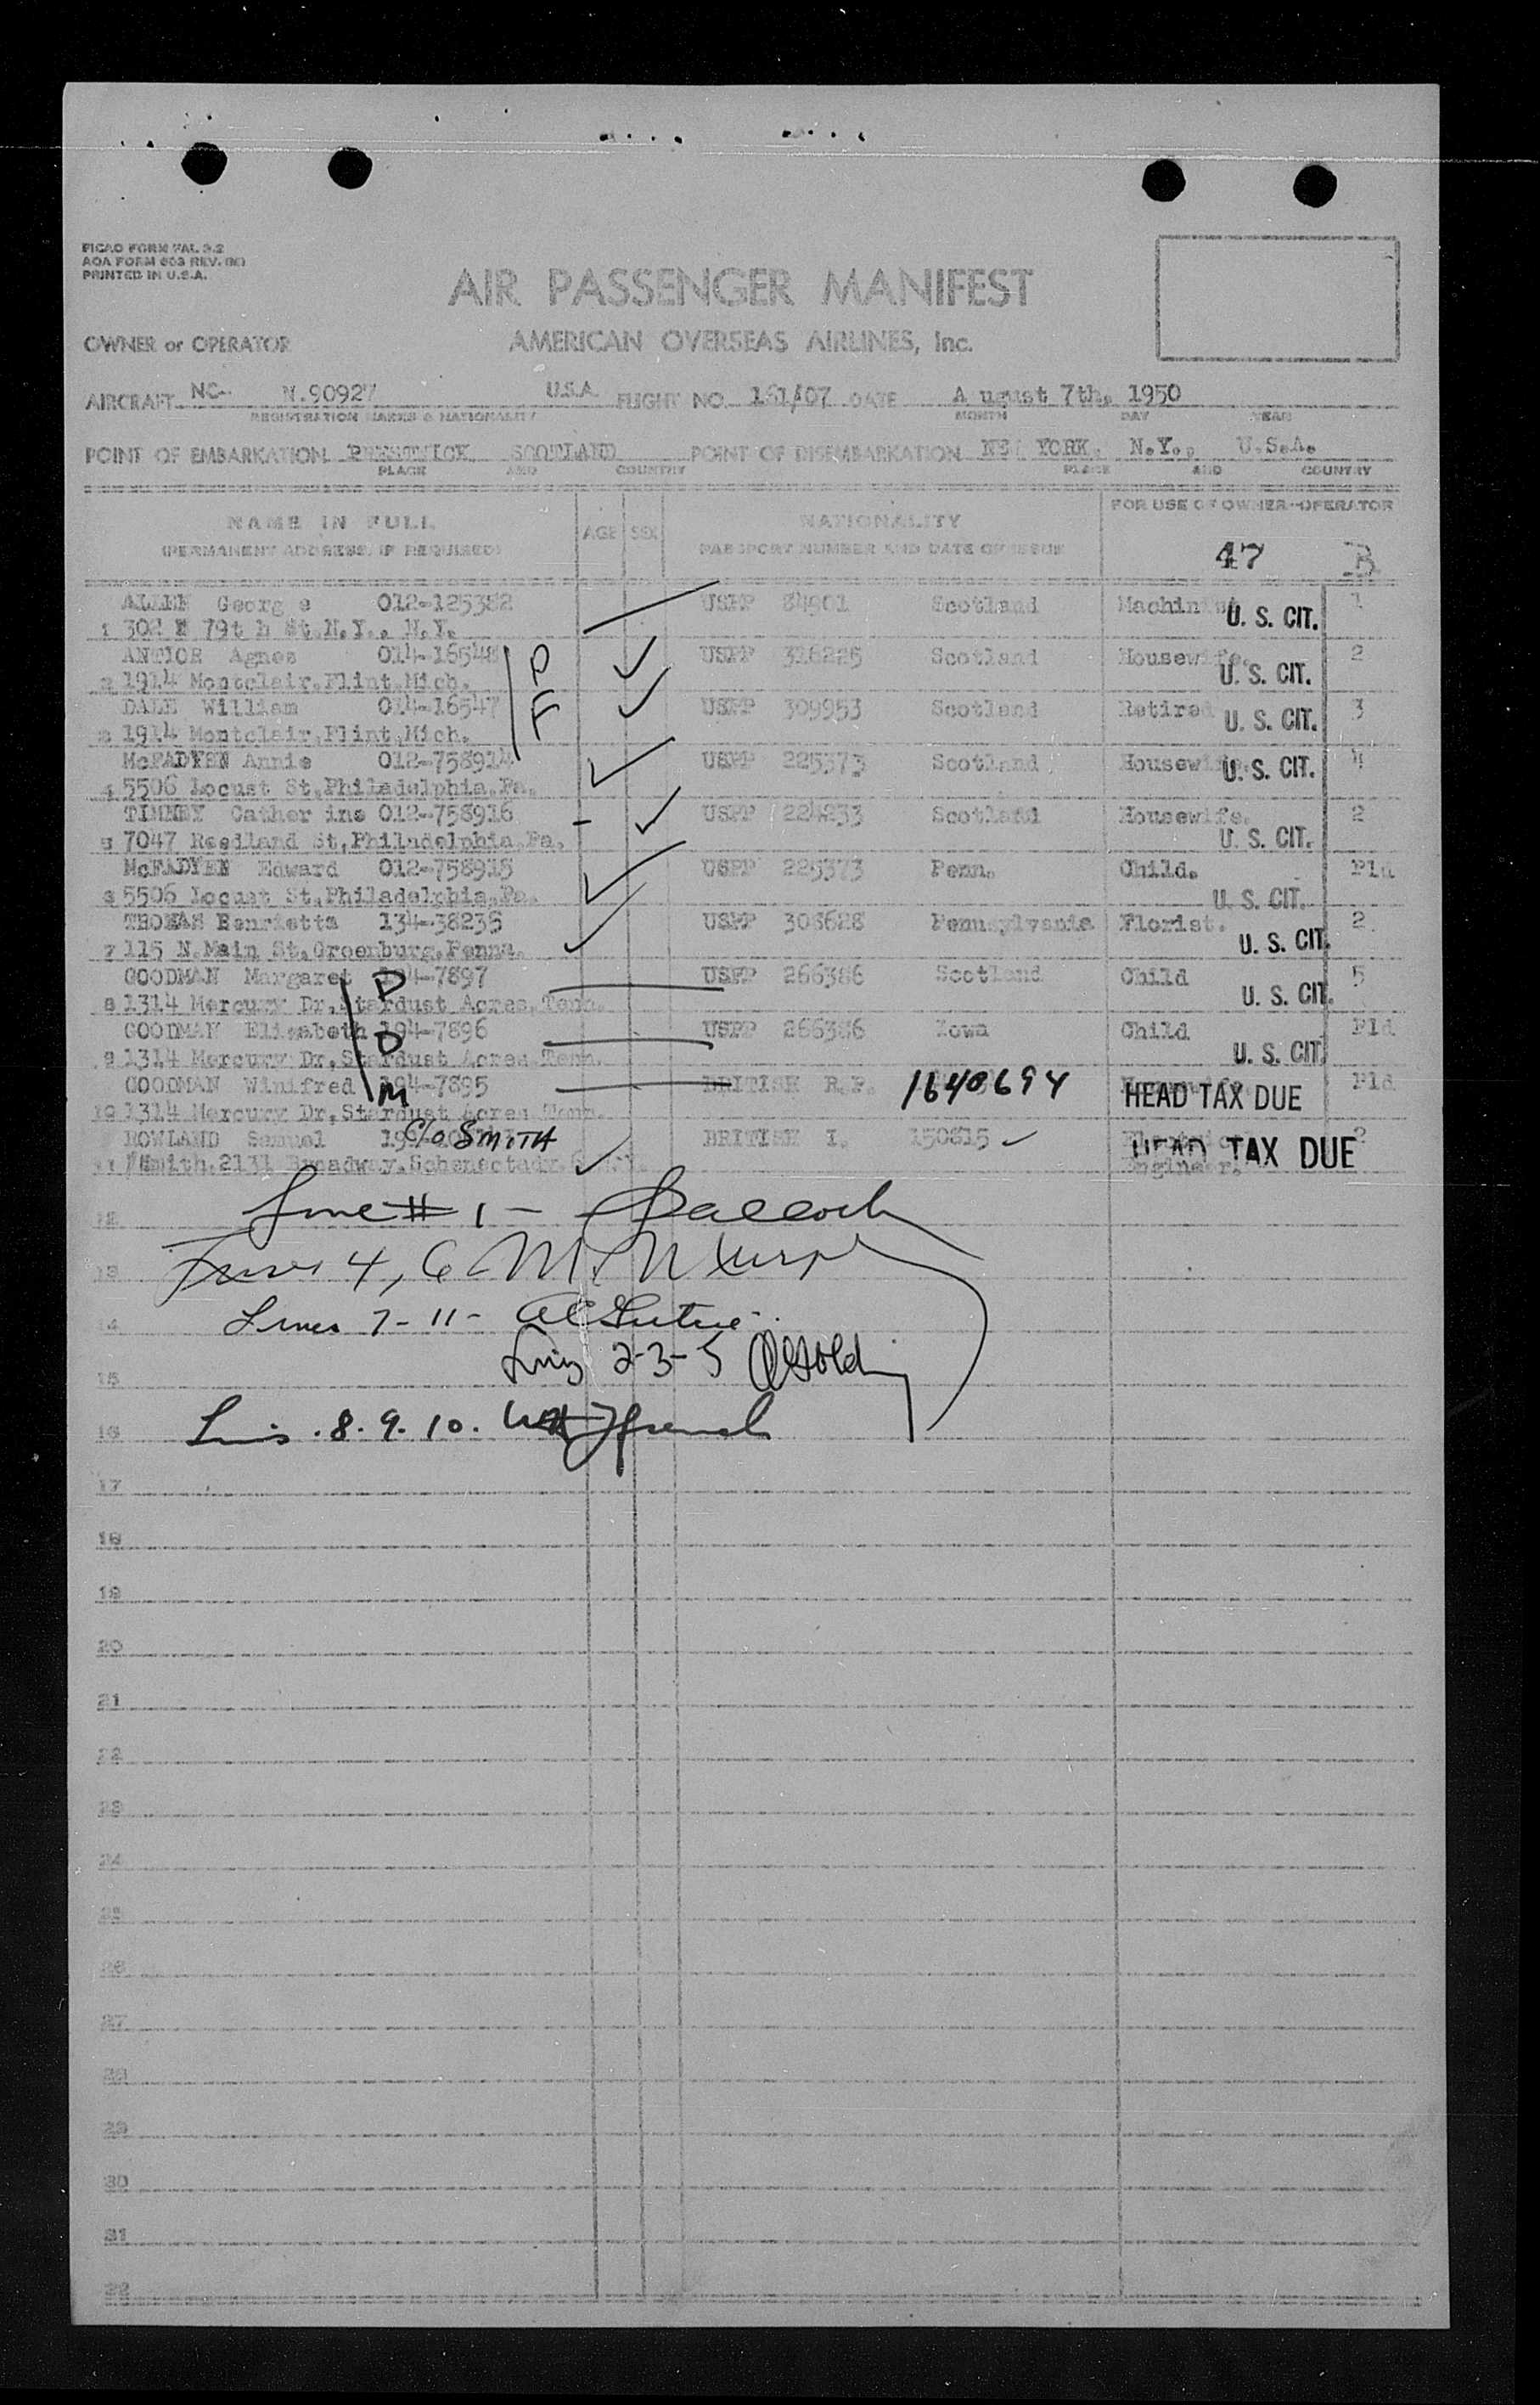 PICAO FORM FAL 3.2
AOA FORM 603 REV.
PRINTED IN U.S.A.
AIR PASSENGER MANIFEST
OWNER or OPERATOR AMERICAN OVERSEAS AIRLINES, Inc.
AIRCRAFT NC- N.90927 U.S.A. FLIGHT NO. 161/07 DATE A ugust 7th, 1950
REGISTRATION MARKS & NATIONALITY MONTH DAY YEAR
POINT OF EMBARKATION PRESTWICK SCOTLAND POINT OF DISEMBARKATION NEW YORK, N.Y., U.S.A.
PLACE AND COUNTRY PLACE AND COUNTRY
NAME IN FULL AGE SEX NATIONALITY FOR USE OF OWNER-OPERATOR
(PERMANENT ADDRESS, IF REQUIRED) PASSPORT NUMBER AND DATE OF ISSUE 47 B
ALLEN Georg e 012-125382 USPP 84901 Scotland Machinist U. S. CIT. 1
1 302 E 79t h St.N.Y., N.Y.
Agnes 014-16548 USPP 316225 Scotland Housewife. U. S. CIT. 2
2 1914 Montclair,Flint,Mich.
DALE William 014-16547 USPP 309953 Scotland Retired U. S. CIT. 3
3 1914 Montclair,Flint,Mich.
McFADYEN Annie 012-758914 USPP 225373 Scotland Housewife. U. S. CIT. 4
4 5506 Locust St,Philadelphia,Pa.
Cather ine 012-758916 USPP 224233 Scotland Housewife. U. S. CIT. 2
5 7047 Reedland St,Philadelphia,Pa.
McFADYEN Edward 012-758915 USPP 225373 Penn. Child. U. S. CIT. Pld
6 5506 Locust St,Philadelphia,Pa.
THOMAS Henrietta 134-38236 USPP 308628 Pennsylvania Florist. U. S. CIT. 2
7 115 N.Main St,Greenburg,Penna.
GOODMAN Margaret 194-7897 USPP 266386 Scotland Child U. S. CIT. 5
8 1314 Mercury Dr,Stardust Acres,Tenn.
GOODMAN Elizabeth 194-7896 USPP 266386 Iowa Child U. S. CIT. Pld
9 1314 Mercury Dr,Stardust Acres,Tenn.
GOODMAN Winifred 194-7895 BRITISH R.P. 1640694 HEAD TAX DUE Pld
10 1314 Mercury Dr,Stardust Acres Tenn.
ROWLAND Samuel C/O SMITH BRITISH I. 150615 HEAD TAX DUE 2
11 /Smith,2131 Broadway,Schenectady Engineer.
P
F
P
P
M
12 Line # 1 -
13 Lines 4, 6 M. Murphy
14 Lines 7-11-
15 Lines 2-3-5
16 Lines. 8. 9. 10. French
17
18
19
20
21
22
23
24
25
26
27
28
29
30
31
32